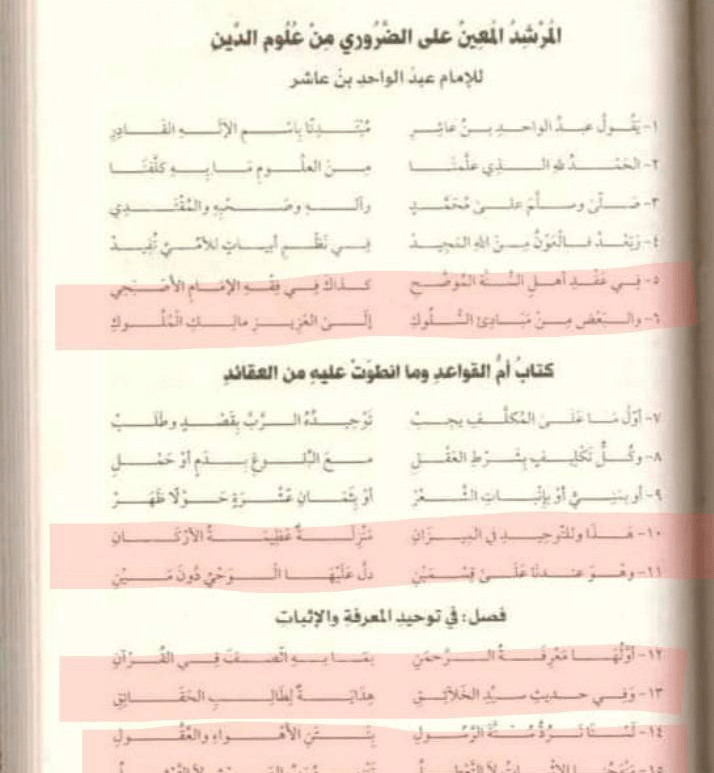 المُرْشِدُ المُعِينُ على الضَّرُوري مِنْ عُلُوم الدِّين
للإمام عبدْ الواحدِ بنْ عاشر
١- يَقُولُ عبدُ الواحدِ بنُ عاشِرِ مُبْتَدِئًا بِاسْمِ الإلَهِ القَادِرِ
٢- الحَمْدُ للهِ الذِي علَّمَنَا مِنَ العلُومِ مَا بِهِ كلَّفَنَا
٣- صَلَّى وسلَّمَ علىٰ مُحَمَّدِ وآلِهِ وصَحْبِهِ والمُقْتَدِي
٤- وَبَعْدُ فالْعَوْنُ مِنَ اللهِ المَجِيدْ فِي نَظْمِ أبياتٍ للأمِّيِّ تُفِيدْ
٥- فِي عَقْدِ أهلِ السُّنَّةِ المُوَضَّحِ كذاكَ فِي فِقْهِ الإمَامِ الأصْبَحِي
٦- والبَعْضِ مِنْ مَبَادِئِ السُّلُوكِ إلَىٰ العَزِيزِ مالِكِ المُلُوكِ
كتابُ أمُّ القواعدِ وما انطوَتْ عليهِ من العقائدِ
٧- أوَّلُ مَا عَلَىٰ المُكلَّفِ يجبْ تَوْحِيدُهُ الرَّبَّ بِقَصْدٍ وطَلَبْ
٨- وكُلُّ تَكْلِيفٍ بِشَرْطِ العَقْلِ معَ البُلُوغِ بِدَمٍ أوْ حَمْلِ
٩- أو بمَنِيٍّ أوْ بإنْبَاتِ الشَّعَرْ أوْ بِثَمَانِ عَشْرَةٍ حَوْلًا ظَهَرْ
١٠- هَذَا وللتَّوحِيدِ في المِيزَانِ مَنْزِلَةٌ عَظِيمَةُ الأرْكَانِ
١١- وهْوَ عندنَا عَلَىٰ قِسْمَيْنِ دلَّ عَلَيْهَا الْوَحْيُ دُونَ مَيْنِ
فصل: في توحيدِ المعرفةِ والإثباتِ
١٢- أوَّلُهَا مَعْرِفَةُ الرَّحمَنِ بمَا بِهِ اتَّصَفَ فِي القُرْآنِ
١٣- وَفِي حديثِ سيِّدِ الخَلَائِقِ هِدَايَةٌ لِطَالِبِ الحَقَائِقِ
١٤- لَسْنَا نَرُدُّ سُنَّةَ الرَّسُولِ بِنَتَنِ الأهْوَاءِ والعُقُولِ